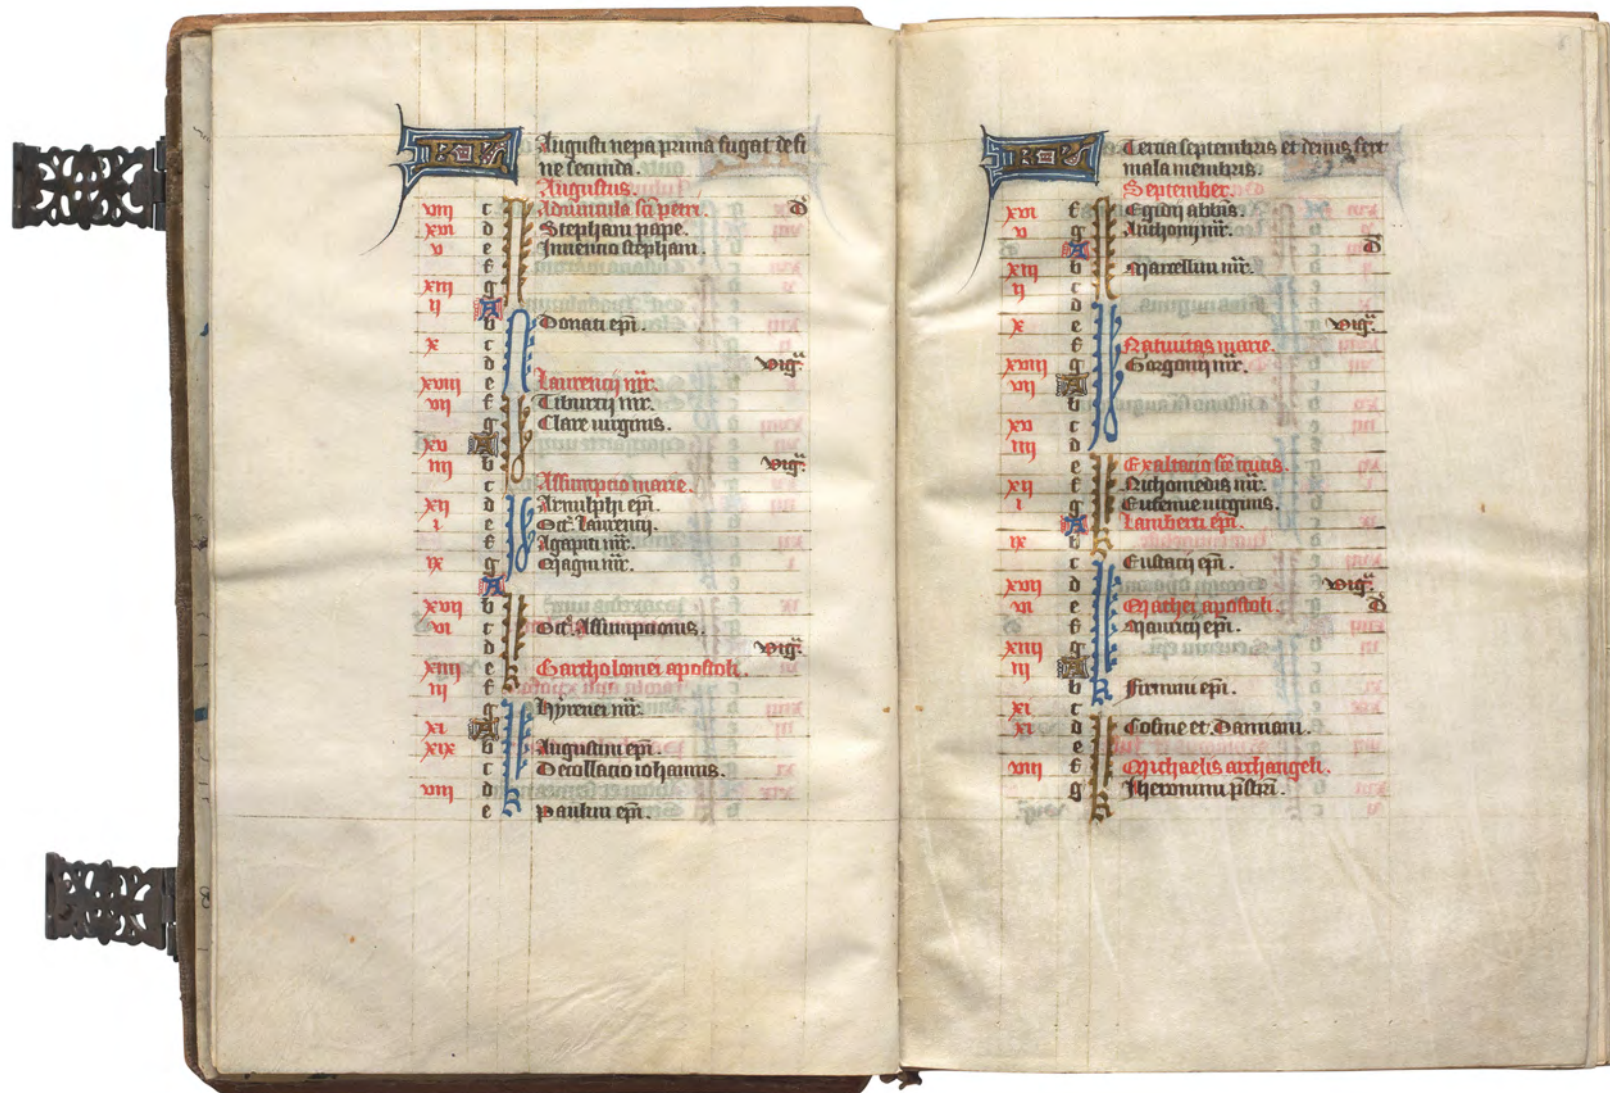 KL Augusti nepa prima fugat de fi
ne secunda.
Augustus.
viii c Aduincula sci petri. D
xvi d Stephani pape.
v e Inuentio stephani.
f
xiii g
ii A
b Donati epi.
x c
d vig.
xviii e Laurencij mr.
vii f Tiburcij mr.
g Clare uirginis.
xv A
iiii b vig.
c Assumpcio marie.
xii d Arnulphi epi.
i e Oct. Laurencij.
f Agapiti mr.
ix g Magni mr.
A
xvii b
vi c Oct. Assumpcionis.
d vig.
xiiii e Bartholomei apostoli.
iii f
g Hyrenei mr.
xi A
xix b Augustini epi.
c Decollacio iohannis.
viii d
e Paulini epi.
KL Tercia septembris et denis fert
mala membris.
September.
xvi f Egidij abbis.
v g Anthonij mr.
A D
xiii b Marcellini mr.
ii c
d
x e vig.
f Natiuitas marie.
xviii g Gorgonij mr.
vii A
b
xv c
iiii d
e Exaltacio sce crucis.
xii f Nichomedis mr.
i g Eufemie uirginis.
A Lamberti epi.
ix b
c Eustacij epi.
xvii d vig.
vi e Mathei apostoli. D
f Mauricij epi.
xiiii g
iii A
b Firmini epi.
xi c
xi d Cosme et Damiani.
e
viii f Michaelis archangeli.
g Iheronimi pstri.